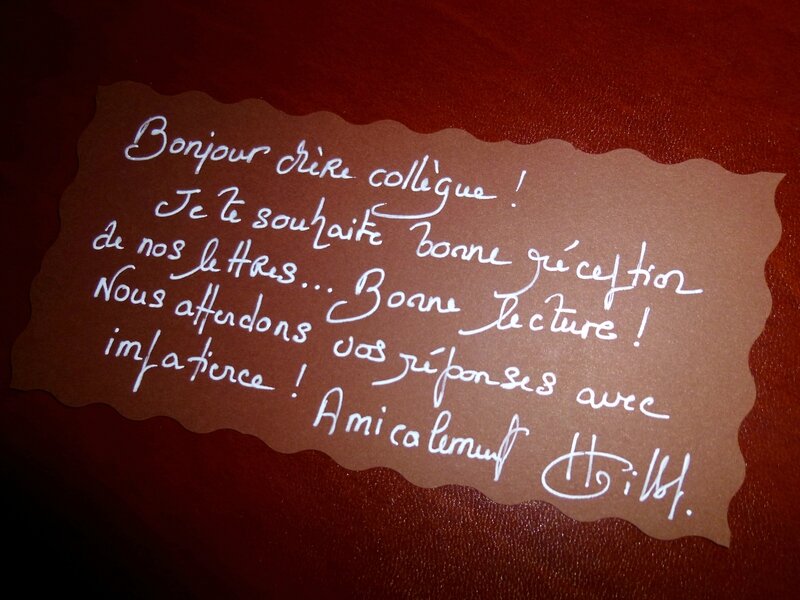 Bonjour chère collègue !
Je te souhaite bonne réception
de nos lettres... Bonne lecture !
Nous attendons vos réponses avec
impatience !
Amicalement